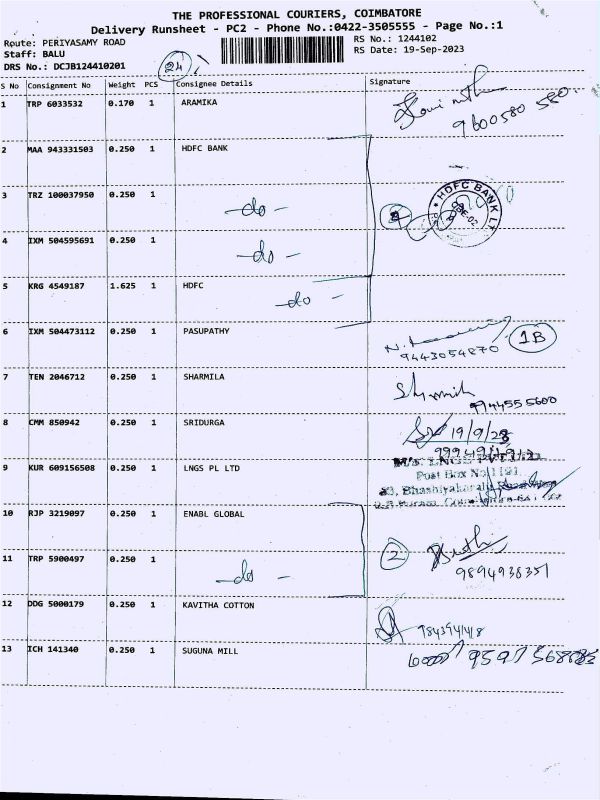 THE PROFESSIONAL COURIERS, COIMBATORE
Delivery Runsheet - PC2 - Phone No.:0422-3505555 - Page No.:1
Route: PERIYASAMY ROAD
RS No.: 1244102
Staff: BALU
RS Date: 19-Sep-2023
DRS No.: DCJB124410201
24
S No Consignment No Weight PCS Consignee Details Signature
1 TRP 6033532 0.170 1 ARAMIKA
9600580 580
2 MAA 943331503 0.250 1 HDFC BANK
3 TRZ 100037950 0.250 1 -do-
HDFC BANK
4 IXM 504595691 0.250 1 -do-
5 KRG 4549187 1.625 1 HDFC
-do-
6 IXM 504473112 0.250 1 PASUPATHY
9443054870 1B
7 TEN 2046712 0.250 1 SHARMILA
9944555600
8 CMM 850942 0.250 1 SRIDURGA
19/9/23
9 KUR 609156508 0.250 1 LNGS PL LTD
M/s. LNGS
Post Box No. 1191
10 RJP 3219097 0.250 1 ENABL GLOBAL
11 TRP 5900497 0.250 1 -do- 2
9894938351
12 DDG 5000179 0.250 1 KAVITHA COTTON
13 ICH 141340 0.250 1 SUGUNA MILL